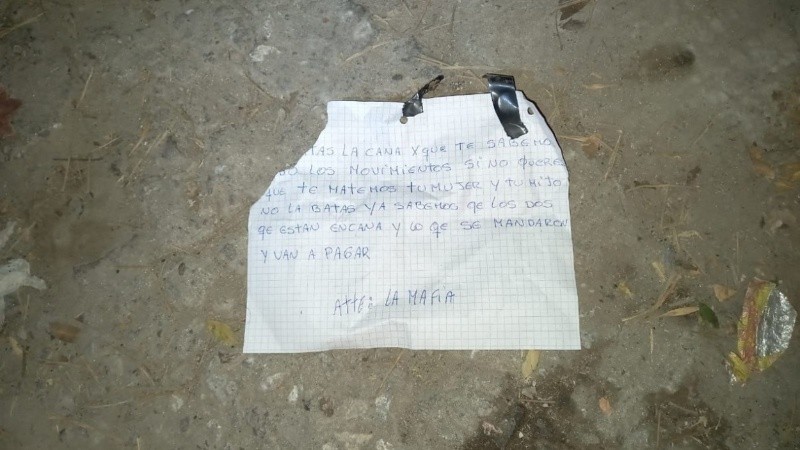 TAS LA CANA X QUE TE SABEMO
DO LOS MOVIMIENTOS SI NO QUERE
QUE TE MATEMOS TU MUJER Y TU HIJO
NO LA BATAS YA SABEMOS QE LOS DOS
QE ESTAN ENCANA Y LO QE SE MANDARON
Y VAN A PAGAR
Atte: LA MAFIA